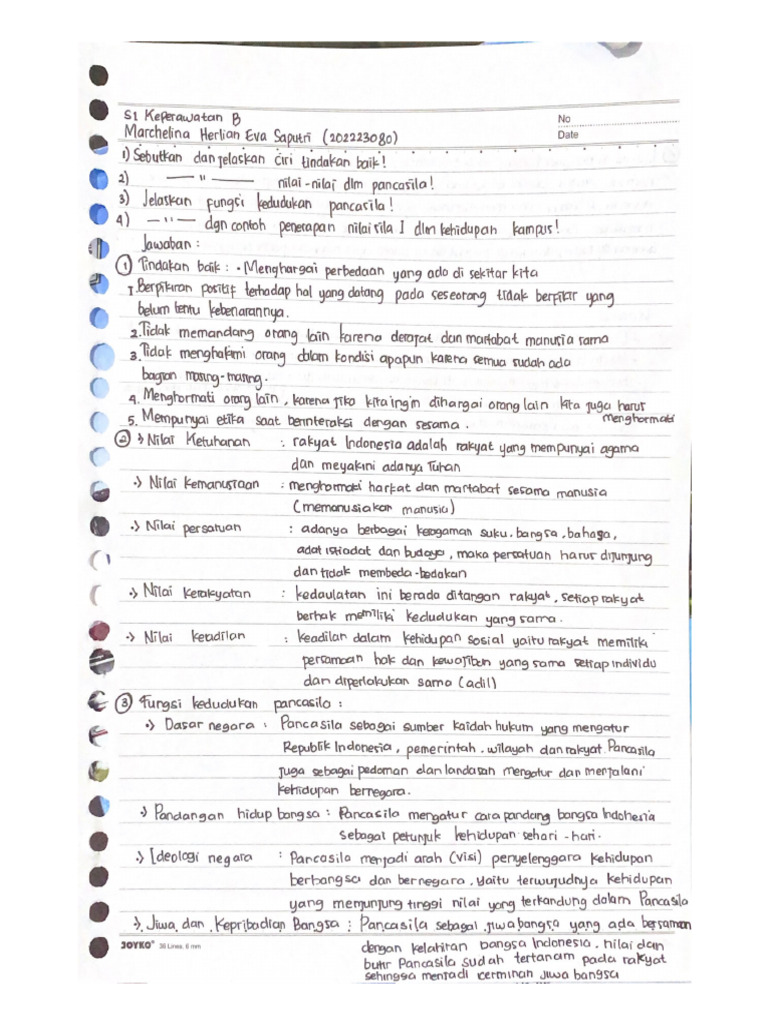 S1 Keperawatan B
No
Marchelina Herlian Eva Saputri (202223080)
Date
1) Sebutkan dan jelaskan ciri tindakan baik!
2) — " — nilai-nilai dlm pancasila!
3) Jelaskan fungsi kedudukan pancasila!
4) — " — dgn contoh penerapan nilai sila I dlm kehidupan kampus!
Jawaban :
① Tindakan baik : • Menghargai perbedaan yang ada di sekitar kita
1. Berpikiran positif terhadap hal yang datang pada seseorang tidak berpikir yang
belum tentu kebenarannya.
2. Tidak memandang orang lain karena derajat dan martabat manusia sama
3. Tidak menghakimi orang dalam kondisi apapun karena semua sudah ada
bagian masing-masing.
4. Menghormati orang lain, karena jika kita ingin dihargai orang lain kita juga harus
menghormati
5. Mempunyai etika saat berinteraksi dengan sesama.
② •> Nilai Ketuhanan : rakyat Indonesia adalah rakyat yang mempunyai agama
dan meyakini adanya Tuhan
•> Nilai Kemanusiaan : menghormati harkat dan martabat sesama manusia
(memanusiakan manusia)
•> Nilai persatuan : adanya berbagai keragaman suku, bangsa, bahasa,
adat istiadat dan budaya, maka persatuan harus dijunjung
dan tidak membeda-bedakan
•> Nilai Kerakyatan : kedaulatan ini berada ditangan rakyat, setiap rakyat
berhak memiliki kedudukan yang sama.
•> Nilai keadilan : keadilan dalam kehidupan sosial yaitu rakyat memiliki
persamaan hak dan kewajiban yang sama setiap individu
dan diperlakukan sama (adil)
③ Fungsi kedudukan pancasila :
•> Dasar negara : Pancasila sebagai sumber kaidah hukum yang mengatur
Republik Indonesia, pemerintah, wilayah dan rakyat. Pancasila
juga sebagai pedoman dan landasan mengatur dan menjalani
kehidupan bernegara.
•> Pandangan hidup bangsa : Pancasila mengatur cara pandang bangsa Indonesia
sebagai petunjuk kehidupan sehari-hari.
•> Ideologi negara : Pancasila menjadi arah (visi) penyelenggara kehidupan
berbangsa dan bernegara, yaitu terwujudnya kehidupan
yang menjunjung tinggi nilai yang terkandung dalam Pancasila
•> Jiwa dan Kepribadian Bangsa : Pancasila sebagai jiwa bangsa yang ada bersamaan
JOYKO® 36 Lines, 6 mm
dengan kelahiran bangsa Indonesia. nilai dan
butir Pancasila sudah tertanam pada rakyat
sehingga menjadi cerminan jiwa bangsa